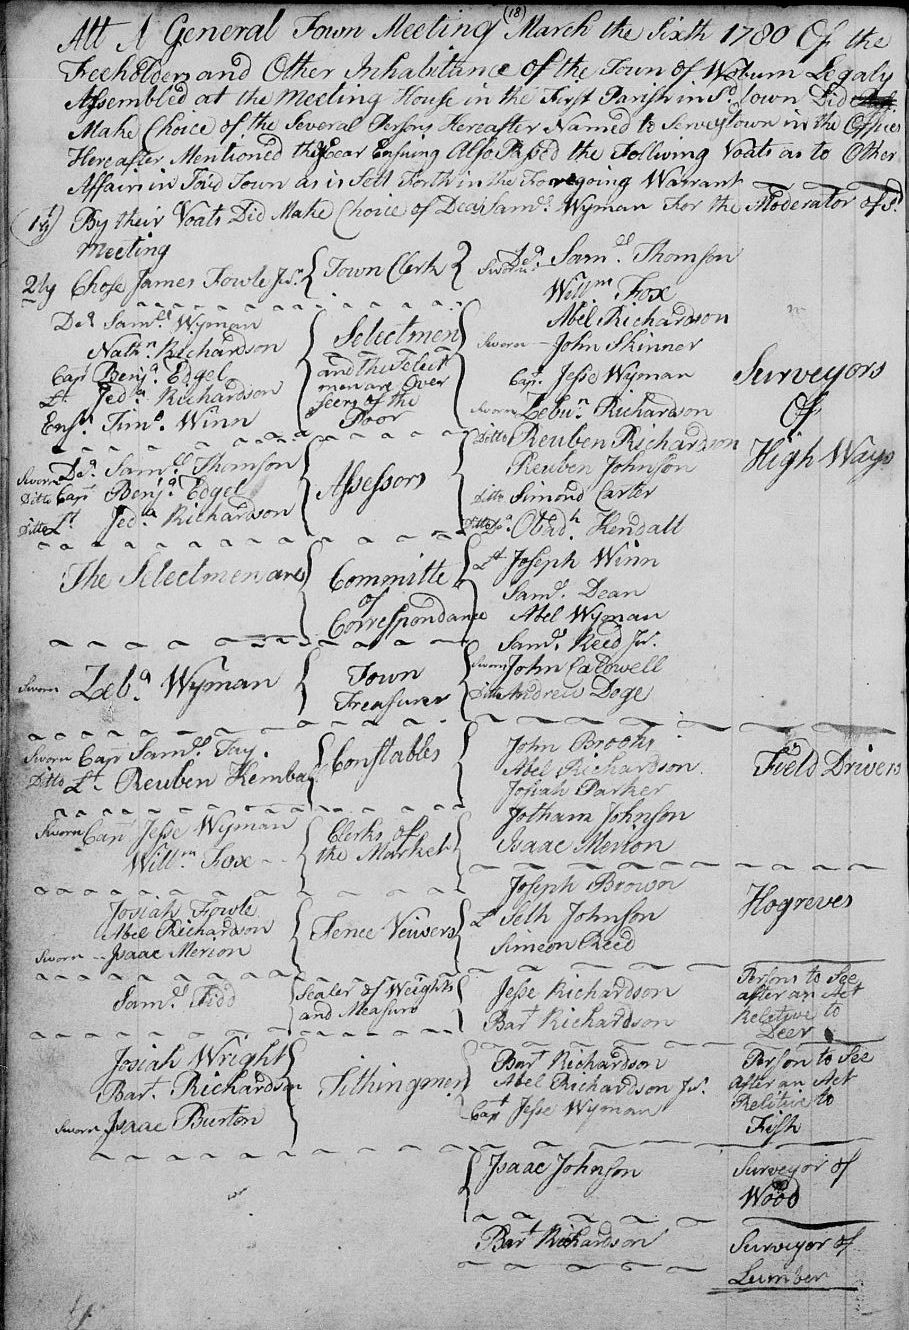 (18)
Att A General Town Meeting March the Sixth 1780 Of the
Freeholders and Other Inhabitance of the Town of Woburn Legaly
Assembled at the Meeting House in the First Parish in Sd. town Did
Make Choice of the Several Persons Hereafter Named to Serve sd town in the Offices
Hereafter Mentioned the Year Ensuing Also Passed the Following Voats as to Other
Affairs in Said Town as is Sett Forth in the Foregoing Warrant
(1ly) By their Voats Did Make Choice of Dea. Saml. Wyman For the Moderator of Sd.
Meeting
2ly Chose James Fowle Jur. Town Clerk
Dea Saml. Wyman
Nathn. Richardson
Capt Benja. Edgel
Lt Jeda Richardson
Ensn. Timo. Winn
Selectmen
and the Select
men are Over
seers of the
Poor
Sworn Dea. Samll Thomson
Ditto Capt Benja Edgel
Ditto Lt Jeda Richardson
Assessors
The Selectmen are
Committe
of
Correspondance
Sworn Zeba. Wyman
Town
Treasurer
Sworn Capt Samll Tay.
Ditto Lt. Reuben Kembal
Constables
Sworn Capt Jesse Wyman
Willm Fox
Clerks of
the Market
Josiah Fowle
Abel Richardson
Sworn Isaac Merion
Fence Veiwers
Samll Tidd
Sealer of Weights
and Measure
Josiah Wright
Bart. Richardson
Sworn Isaac Burton
Tithingmen
Dea Samll Thomson
Sworn
Willm Fox
Abel Richardson
Sworn John Skinner
Capt. Jesse Wyman
Sworn Zebun Richardson
Ditto Reuben Richardson
Reuben Johnson
Ditto Simond Carter
Ditto Obadh. Kendall
Lt Joseph Winn
Saml. Dean
Abel Wyman
Saml Reed Jur.
Sworn John Caldwell
Ditto Andrew Doge
Surveyors
Of
High Ways
John Brooks
Abel Richardson
Josiah Parker
Jotham Johnson
Isaac Merion
Field Drivers
Joseph Brown
Lt Seth Johnson
Simeon Reed
Hogreves
Jesse Richardson
Bart Richardson
Persons to See
after an Act
Relitive to
Deer
Bart Richardson
Abel Richardson Jur.
Capt Jesse Wyman
Person to See
after an Act
Relitive to
Fish
Isaac Johnson
Surveyor of
Wood
Bart Richardson
Surveyor of
Lumber